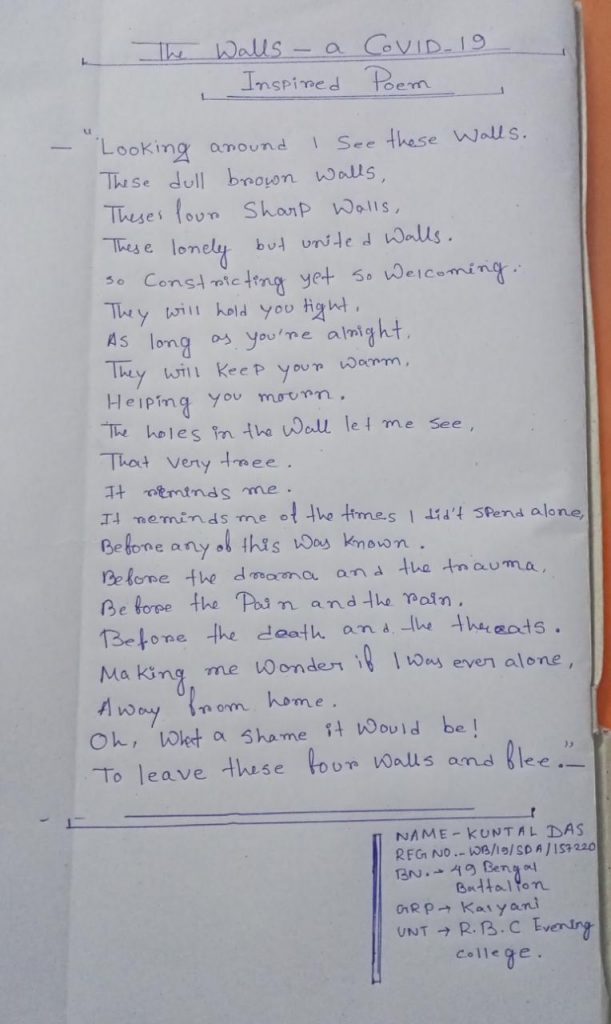 The Walls - a COVID-19
Inspired Poem
- "Looking around I see these walls.
These dull brown walls,
These four sharp walls,
These lonely but united walls.
so constricting yet so welcoming.
They will hold you tight,
As long as you're alright.
They will keep your warm,
Helping you mourn.
The holes in the wall let me see,
That very tree.
It reminds me.
It reminds me of the times I did't spend alone,
Before any of this was known.
Before the drama and the trauma,
Before the Pain and the rain.
Before the death and the threats.
Making me wonder if I was ever alone,
Away from home.
Oh, What a shame it would be!
To leave these four walls and flee."-
NAME - KUNTAL DAS
REG NO.- WB/19/SDA/157220
BN. → 49 Bengal
Battalion
GRP → Kalyani
UNT → R.B.C Evening
college.